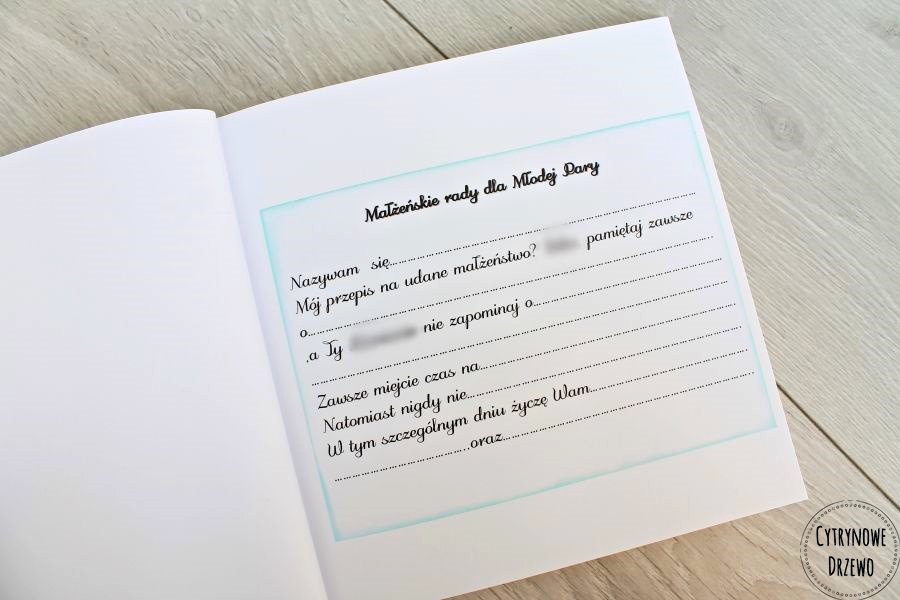 Małżeńskie rady dla Młodej Pary
Nazywam się....................................................
Mój przepis na udane małżeństwo? pamiętaj zawsze
o....................................................
,a Ty nie zapominaj o....................................
....................................................
Zawsze miejcie czas na....................................
Natomiast nigdy nie....................................
W tym szczególnym dniu życzę Wam....................................
....................................oraz....................................
CYTRYNOWE
DRZEWO